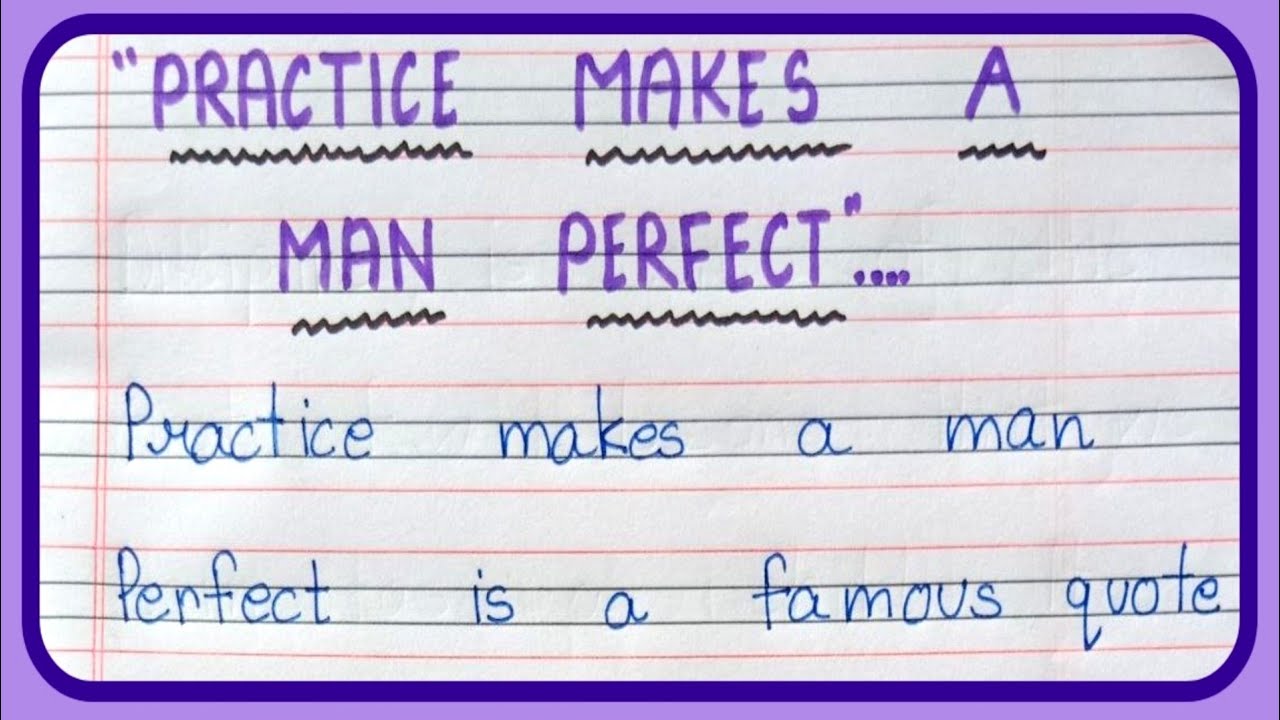 "PRACTICE MAKES A
MAN PERFECT"....
Practice makes a man
Perfect is a famous quote